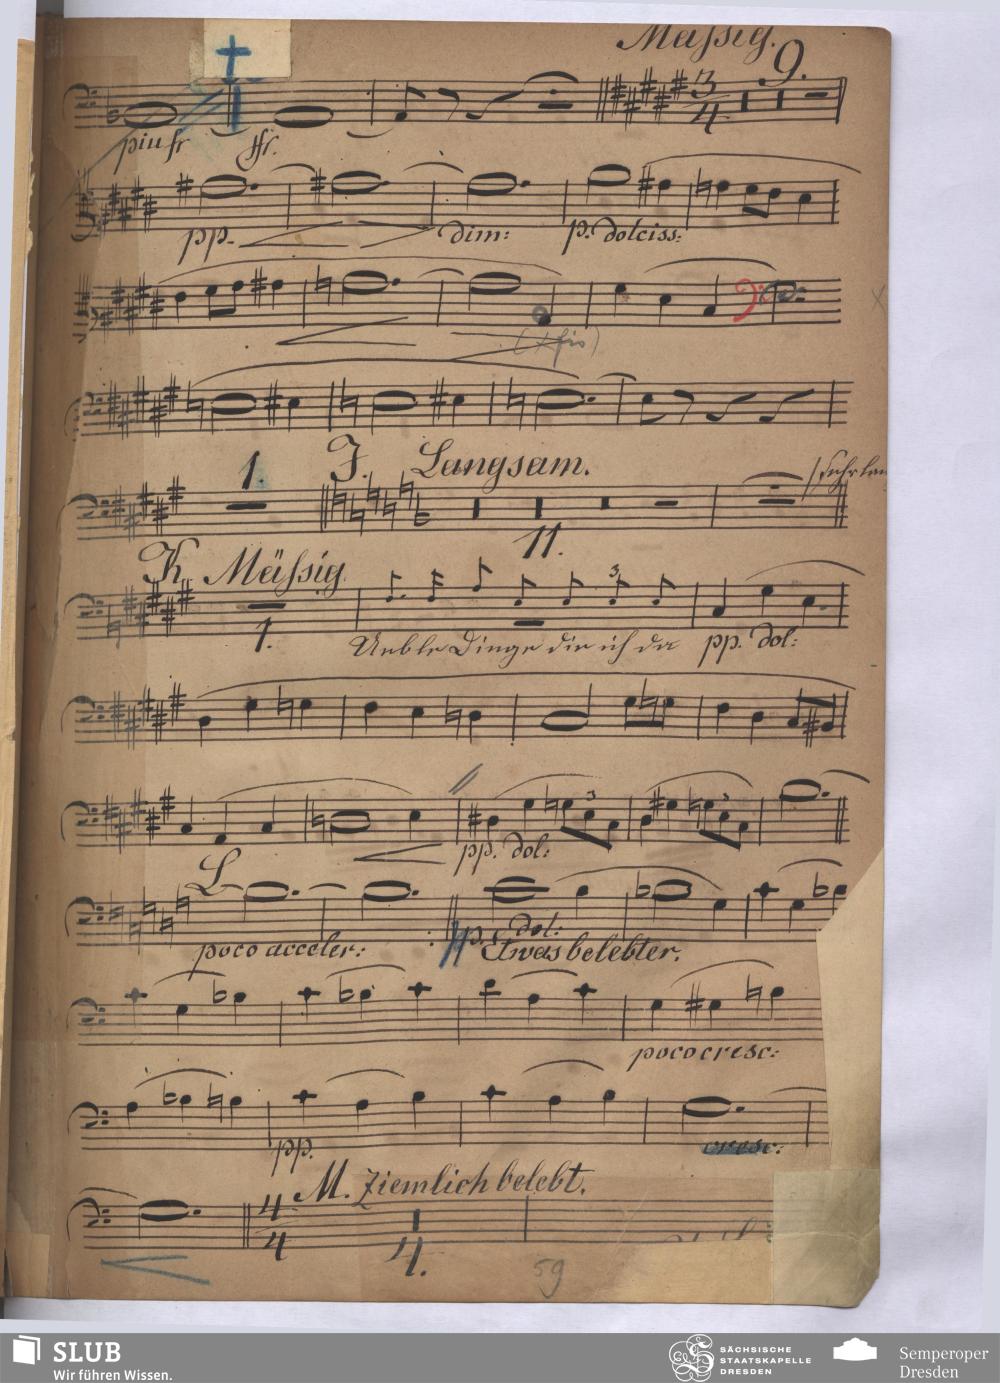 Mässig.
9.
3
4
piu fr
ffr.
pp.
dim:
p. dolciss:
(fis)
1.
J. Langsam.
11.
K Mässig
1.
3
Ueble Dinge die ich da
pp. dol:
3
3
pp. dol:
L
poco acceler:
pp. dol:
Etwas belebter.
poco cresc:
pp.
cresc:
M. Ziemlich belebt.
4
4
4.
59
SLUB
Wir führen Wissen.
SÄCHSISCHE
STAATSKAPELLE
DRESDEN
Semperoper
Dresden